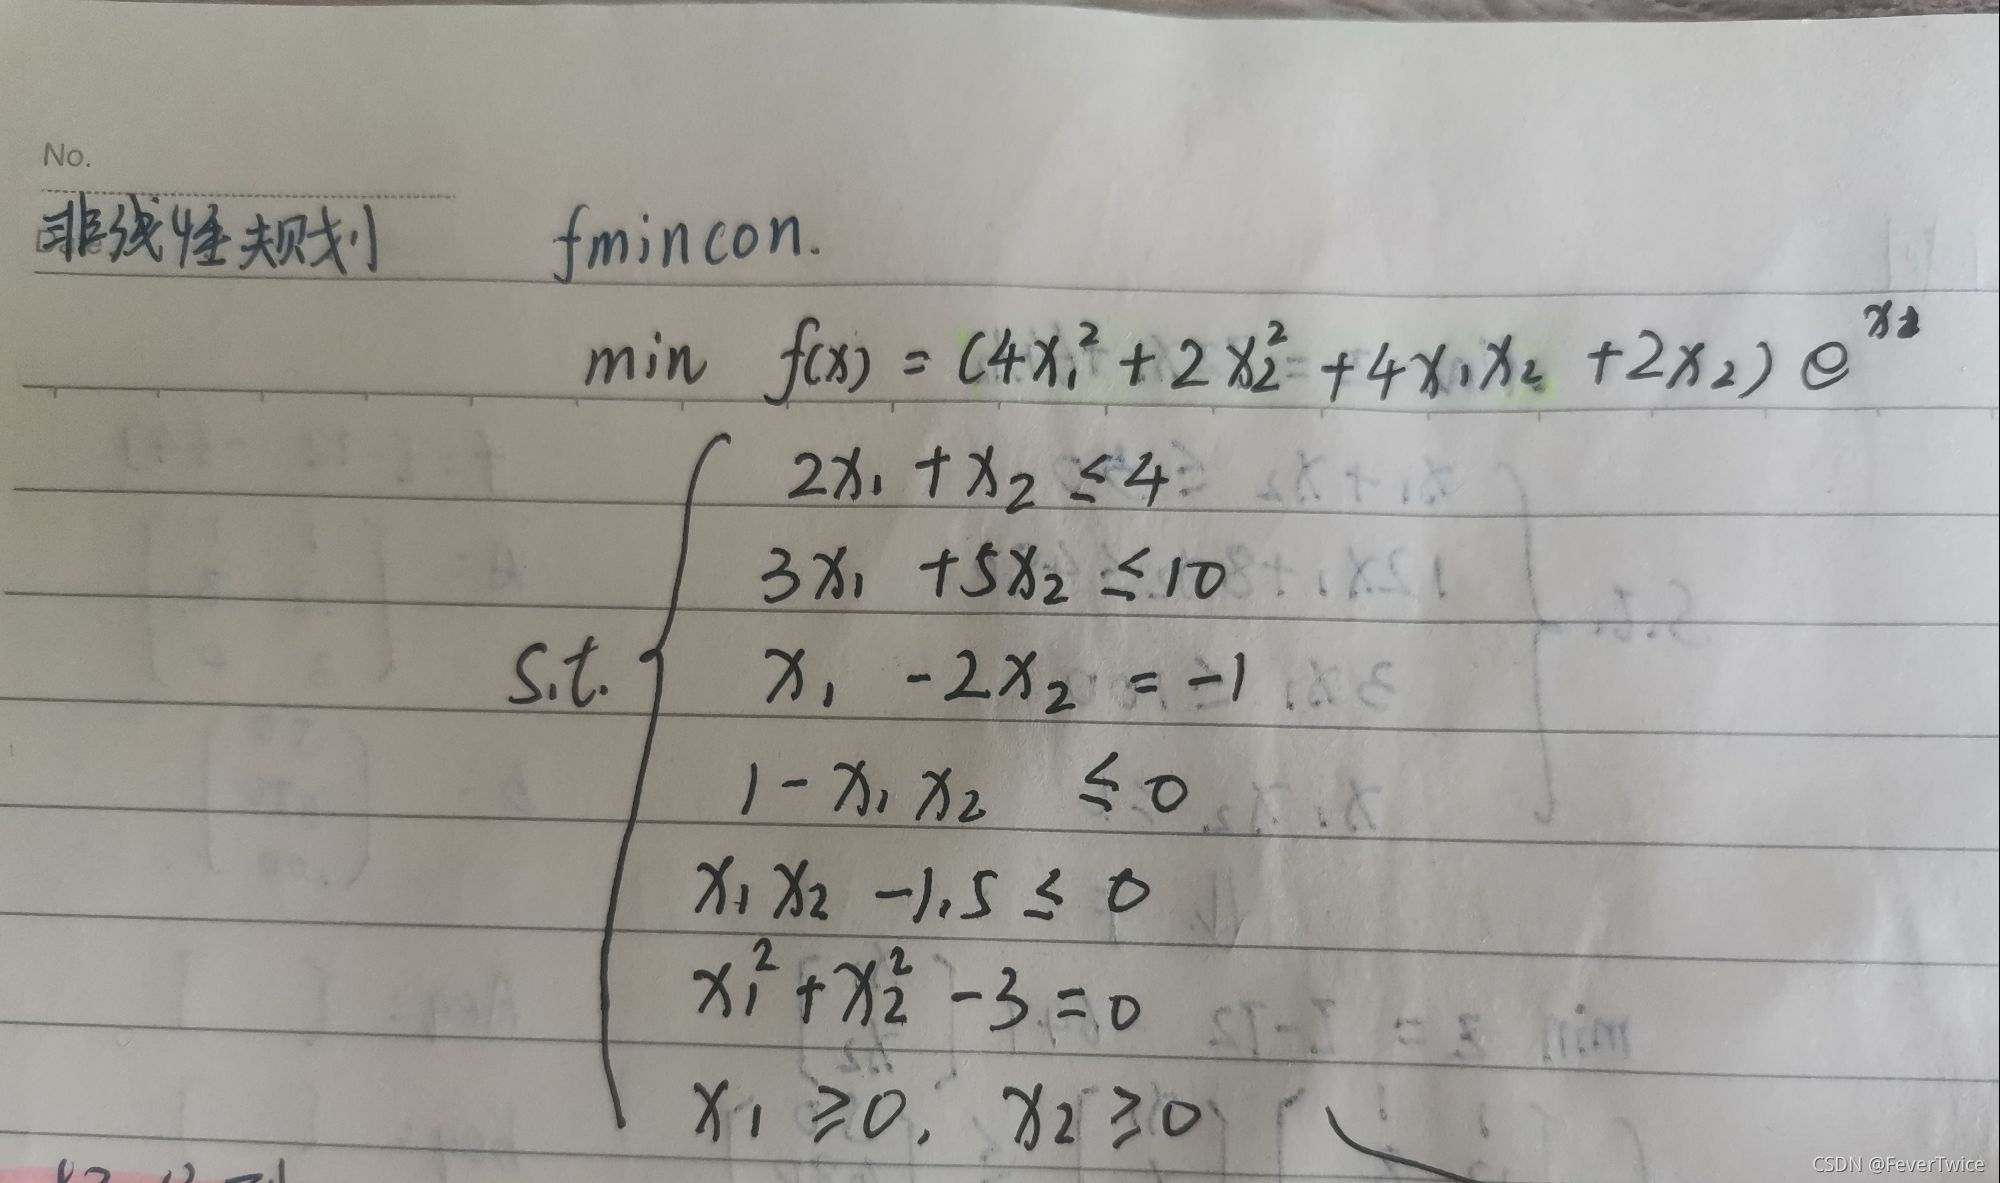 No.
非线性规划 fmincon.
min f(x) = (4x₁² + 2x₂² + 4x₁x₂ + 2x₂) e
2x₁ + x₂ ≤ 4
3x₁ + 5x₂ ≤ 10
s.t. x₁ - 2x₂ = -1
1 - x₁x₂ ≤ 0
x₁x₂ - 1.5 ≤ 0
x₁² + x₂² - 3 = 0
x₁ ≥ 0, x₂ ≥ 0
CSDN @FeverTwice